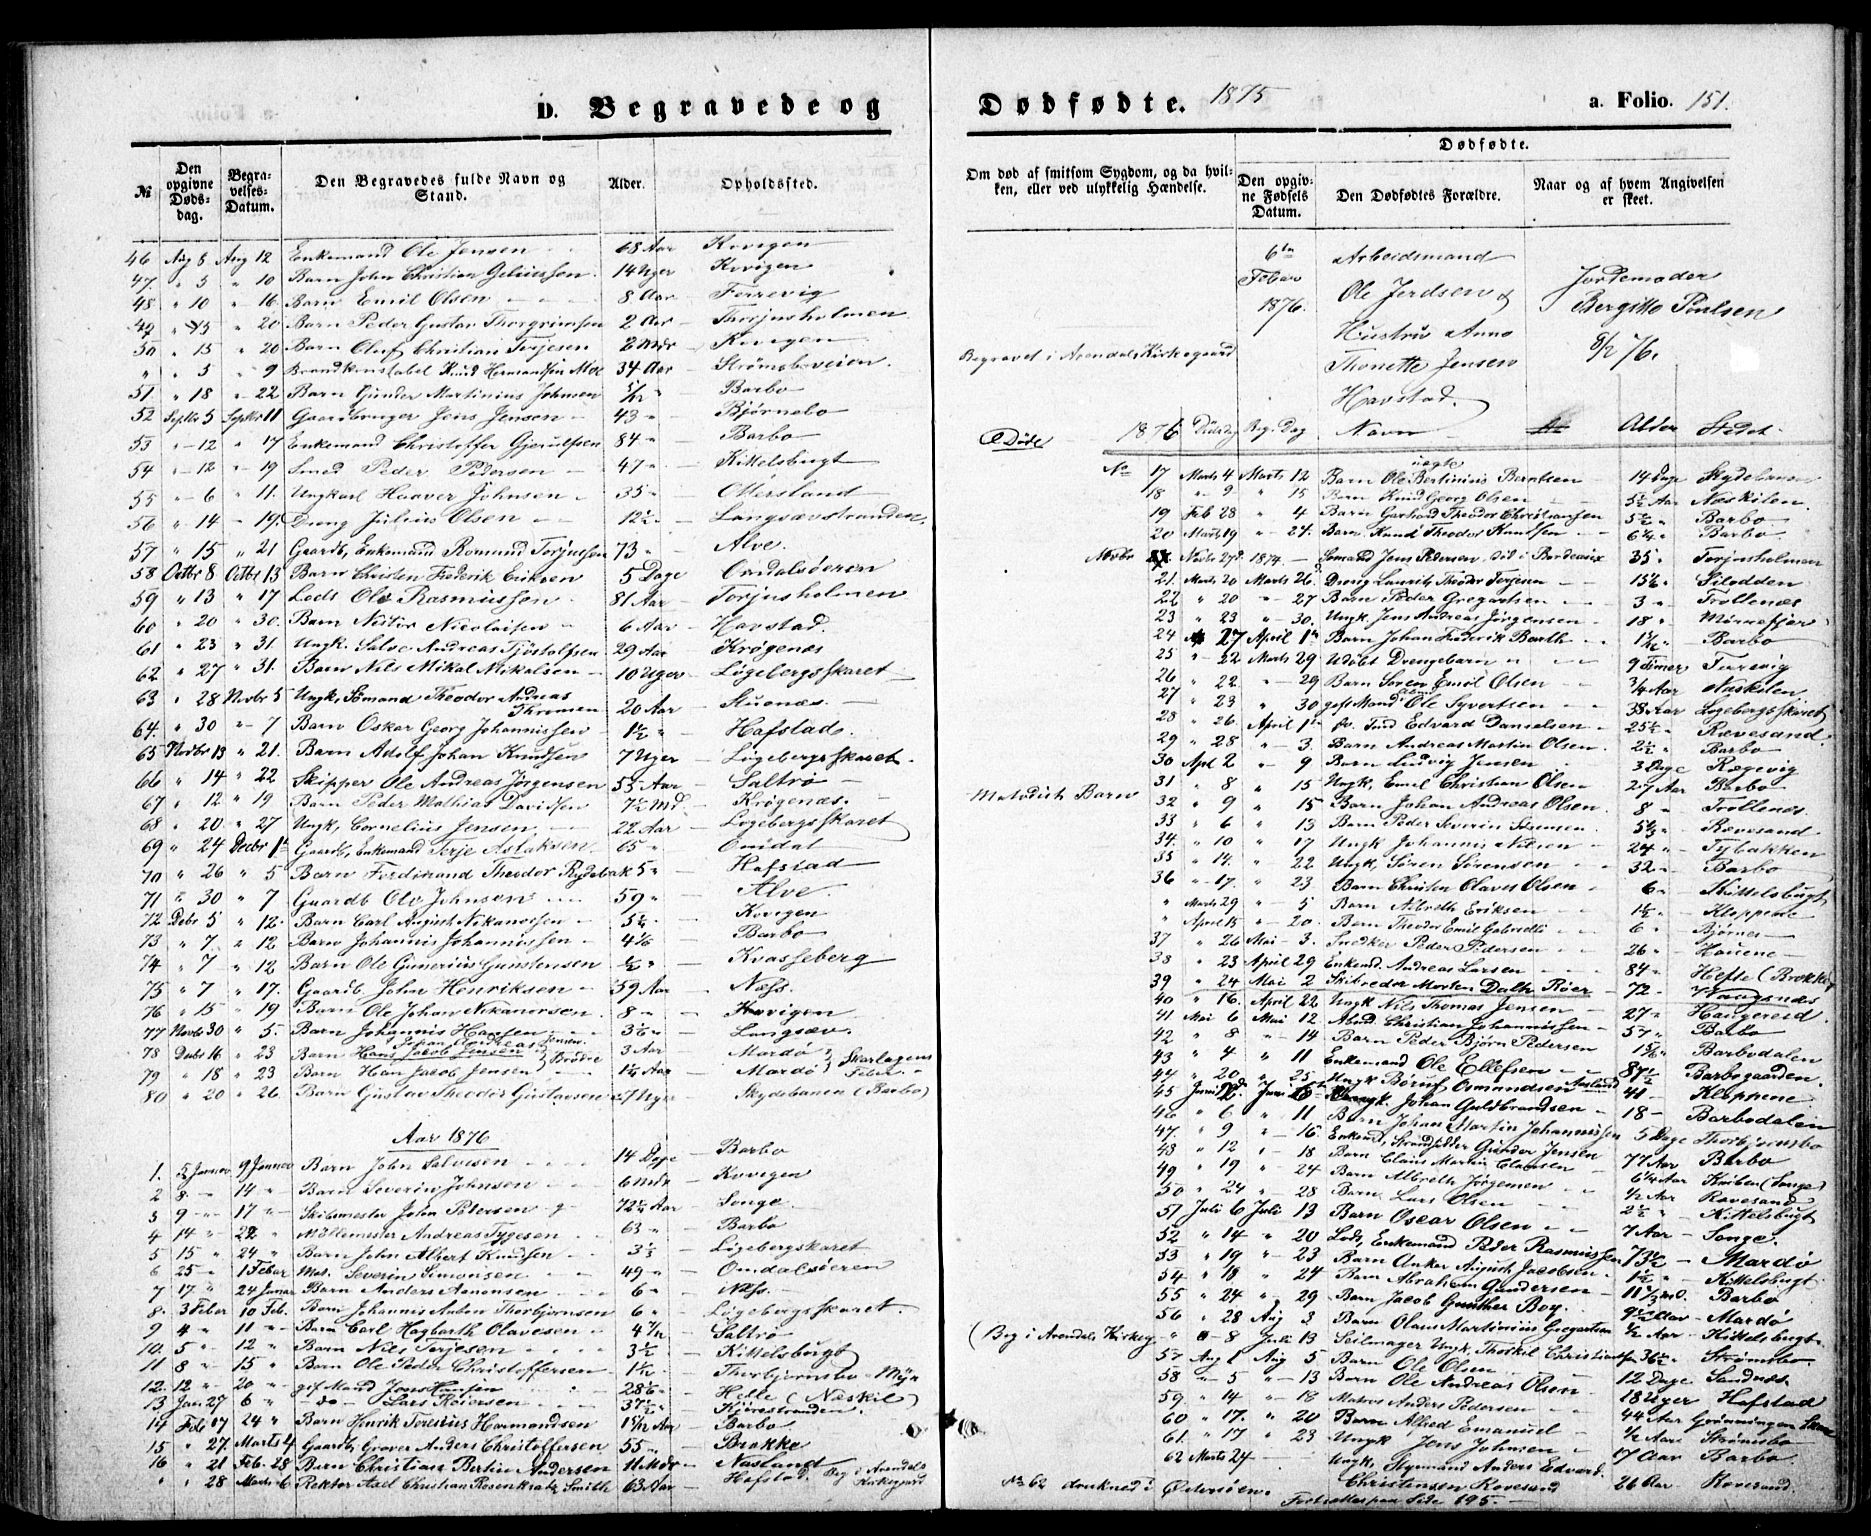 D. Begravede og
№ | Den opgivne Dødsdag. | Begravelses-Datum. | Den Begravedes fulde Navn og Stand. | Alder. | Opholdssted.
46 Aug 8 Aug 12 Enkemand Ole Jensen 68 Aar Kovigen
47 " 5 " 10 Barn John Christian Geliussen 14 Uger Kovigen
48 " 10 " 16 Barn Emil Olsen 8 Aar Torrevig
49 " 13 " 20 Barn Peder Gustav Thorgrimsen 2 Aar Thorjusholmen
50 " 15 " 20 Barn Oluf Christian Terjesen 2 Mdr Kovigen
" " 5 " 9 Brandkonstabel Knud Hermandsen Moe 34 Aar Strømsboveien
51 " 18 " 22 Barn Gunder Martinius Johnsen Barbo
52 Septbr 5 Septbr 11 Gaardbruger Jens Jensen 43 " Bjørnebo
53 " 12 " 17 Enkemand Christoffer Gjerulfsen 84 " Barbo
54 " 12 " 19 Smed Peder Pedersen 47 " Kittelsbugt
55 " 6 " 11 Ungkarl Haaver Johnsen 35 " Omersland
56 " 14 " 19 Dreng Julius Olsen 12½ " Langsævstranden
57 " 15 " 21 Gaardb, Enkemand Romund Torjusen 73 " Alve
58 Octbr 8 Octbr 13 Barn Christen Frederik Eriksen 5 Dage Omdalsøeren
59 " 13 " 17 Lods Ole Rasmussen 81 Aar Torjusholmen
60 " 20 " 30 Barn Nestor Nicolaisen 6 Aar Havstad
61 " 23 " 31 Ungk. Salve Andreas Tjøstolfsen 29 Aar Krøgenæs
62 " 27 " 31 Barn Nils Mikal Mikalsen 10 Uger Løgebergsskaret
63 " 28 Novbr 5 Ungk, Sømand Theodor Andreas Thommen 20 Aar Stuenæs
64 " 30 " 7 Barn Oskar Georg Johannissen 1½ " Hafstad
65 Novbr 13 " 21 Barn Adolf Johan Knudsen 7 Uger Løgebergsskaret
66 " 14 " 22 Skipper Ole Andreas Jørgensen 53 Aar Saltrø
67 " 12 " 19 Barn Peder Mathias Davidsen 7½ Md Krøgenæs
68 " 20 " 27 Ungk, Cornelius Jensen 22 Aar Løgebergsskaret
69 " 24 Decbr 1 Gaardb, Enkemand Terje Aslaksen 65 " Omdal
70 " 26 " 5 Barn Ferdinand Theodor Rydebak 5 " Hafstad
71 " 30 " 7 Gaardb Ole Johnsen 59 " Alve
72 Debr 5 " 12 Barn Carl August Nikanorsen 5½ " Kovigen
73 " 7 " 12 Barn Johannis Johannissen Barbo
74 " 7 " 12 Barn Ole Gunerius Gunstensen ½ " Kvasseberg
75 " 7 " 17 Gaardb Johan Henriksen 59 Aar Næss
76 " 15 " 19 Barn Ole Johan Nikanorsen 8 " Kovigen
77 Novbr 30 " 5 Barn Johannis Hansen Langsæv
78 Decbr 16 " 23 Barn Johan Andreas Jensen 3 Aar Mardø } Skarlagens
79 " 18 " 23 Barn Hans Jacob Jensen } Brødre Mardø } Feber
80 " 20 " 26 Barn Gustav Theodor Gustavsen 7 Uger Skydebanen (Barbo)
Aar 1876
1 5 Januar 9 Januar Barn John Salvesen 14 Dage Barbo
2 8 " 14 " Barn Severin Johnsen 6 Mdr Kovigen
3 9 " 17 " Skibsmester John Petersen 72½ Aar Songe
4 14 " 22 " Møllemester Andreas Tygesen 63 " Barbo
5 15 " 24 " Barn John Albert Knudsen 3½ Løgebergskaret
6 25 " 1 Febar Mat. Severin Simonsen 49 " Omdalsøeren
7 17 " 24 Januar Barn Anders Aanonsen 6 " Næss
8 3 Febar 10 Feb. Barn Johannis Anton Thorbjørnsen 6 " Løgebergsskaret
9 4 " 11 " Barn Carl Hagbarth Olavesen Saltrø
10 5 " 12 " Barn Nils Terjesen 3½ Kittelsbugt
11 8 " 15 " Barn Ole Peder Christoffersen Thorbjørnsbo
12 12 " 20 " gift Mand Jens Hansen Helle (Neskil)
13 Jan 27 6 " — do — Lars Roiersen 37½ " Kjørrestranden
14 Feb 17 24 " Barn Henrik Terenius Hermandsen Barbo
15 " 27 Marts 4 Gaardb, Graver Anders Christoffersen 55 " Brække
16 " 21 Feb. 28 Barn Christian Bertin Andersen 11 Mdr Næsland
" " 28 Marts 6 Rektor Axel Christian Rosenkrantz Smith 63 Aar Hafstad. Beg i Arendals Kirkegaard
Dødfødte. 1875 a. Folio. 151.
Om død af smitsom Sygdom, og da hvilken, eller ved ulykkelig Hændelse. | Dødfødte. | Den opgivne Fødsels Datum. | Den Dødfødtes Forældre. | Naar og af hvem Angivelsen er skeet.
6te Febar 1876.
Arbeidsmand Ole Jerdsen & Hustru Anne Thonette Jensen Havstad.
Jordemoder Bergitte Poulsen 8/2 76.
Begravet i Arendals Kirkegaard
Døde 1876 Dødsdag Beg. Dag Navn Alder Stedet
No 17 Marts 4 Marts 12 Barn uægte Ole Bertinius Berntsen 14 Dage Skydebanen
18 " 9 " 15 Barn Knud Georg Olsen 5½ Aar Neskilen
19 Feb 28 " 4 Barn Gerhard Theodor Christiansen 5½ " Barbo
20 Marts 19 " 24 Barn Knud Theodor Knudsen 6¼ " Barbo
Novbr 27 1874 Sømand Jens Pedersen død i Bordeaux 35 Torjusholmen
21 Marts 20 Marts 26 Dreng Laurits Theodor Terjesen Filodden
22 " 20 " 27 Barn Peder Gregertsen 3 " Trollenæs
23 " 23 " 30 Ungk Jens Andreas Jørgensen 18 "
24 27 April 1 Barn Johan Frederik Barth Barbo
25 " 22 Marts 29 Udøbt Drengebarn 9 Timer Torrevig
26 " 22 " 29 Barn Søren Emil Olsen ¾ Aar Neskilen
27 " 23 " 30 gift Mand Ole Syvertsen 38 Aar Løgebergsskaret
28 " 26 April 1 Edvard Danielsen 25½ " Rævesand
29 " 28 " 3 Barn Andreas Martin Olsen 2½ " Barbo
30 Apl 2 " 9 Barn Ludvig Jensen 3 Dage Rægevig
31 " 8 " 15 Ungk, Emil Christian Olsen 27 Aar Barbo
Metodist Barn 32 " 9 " 15 Barn Johan Andreas Olsen 8 " Trollenæs
33 " 6 " 13 Barn Peder Severin Sørensen Rævesand
34 " 10 " 17 Ungk Johannis Nilsen 24 " Tybakken
35 " 14 " 22 Ungk, Søren Sørensen 32 " Barbo
36 " 17 " 23 Barn Christen Olaves Olsen 6 " Kittelsbugt
" Marts 29 " 5 Barn Albreth Eriksen 1½ " Kloppene
" April 15 " 20 Barn Theodor Emil Gabrielli 6 " Bjørnes
37 " 26 Mai 3 Snedker Peder Pedersen 26 " Hauene
38 " 23 April 29 Enkemd. Andreas Larsen 84 " Helle (Brække)
39 " 24 Mai 2 Skibreder Morten Dalh Bøer 72 " Vaagsnæs
40 " 16 April 22 Ungk Nils Thomas Jensen 27 " Haugereid
41 Mai 6 Mai 12 Christian Johannissen 57 " Barbo
42 " 8 " 14 Barn Peder Bjørn Pedersen Barbodalen
43 " 4 " 11 Enkemand Ole Ellefsen 87½ Barbogaarden
44 " 20 " 25 Ungk Børuf Osmundsen Aasland 41 " Kloppene
45 Juni 2 Juni 6 Ungk. Johan Guldbrandsen 18 " Barbodalen
46 " 6 " 11 Barn Johan Martin Johannissen 5 Dage Thorbjørnsbo
47 " 9 " 16 Enkemd, Gunder Jensen 77 Aar Barbo
48 " 12 " 18 Barn Claus Martin Clausen 6¼ Aar Kniben (Songe)
49 " 19 " 24 Barn Albreth Jørgensen ½ Aar Rævesand
50 " 24 " 28 Barn Lars Olsen 2½ " Kittelsbugt
51 Juli 6 Juli 13 Barn Oscar Olsen 7 Aar Songe
52 " 14 " 20 Lods, Enkemand Peder Rasmussen 73½ Mardø
53 " 19 " 23 Barn Anker August Jacobsen 1½ " Kittelsbugt
54 " 18 " 24 Barn Abraham Gundersen Barbo
55 " 24 " 29 Barn Jacob Gunther Boy Mardø
56 " 28 Aug 3 Barn Olaus Martinius Gregertsen ½ Aar Kittelsbugt
(Beg i Arendals Kirkeg. " 8 Juli 13 Seilmager Ungk, Thorkil Christiansen 36½ " Strømsbo
57 Aug 1 Aug 5 Barn Ole Olsen 12 Dage Sandnæs
58 " 5 " 13 Barn Ole Andreas Olsen 18 Uger Hafstad
59 " 14 " 18 Matros Anders Pedersen 44 Aar Grønningen
60 " 17 " 20 Barn Alfred Emanuel ½ Aar Strømsbo
61 " 17 " 23 Ungk, Jens Johnsen 17 Aar Barbo
62 Marts 24 Ungk, Styrmand Anders Edvard Christensen Rovesand 26 Aar Rovesand
No 62 druknede i Østersøen.
Fortsættes paa Side 195.